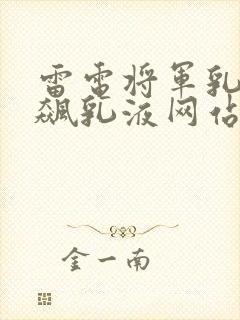 雷电将军乳
飙乳液网站
金一南